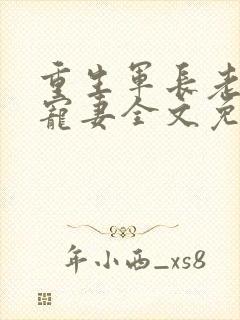 重生军长老
宠妻全文免
年小西_xs8